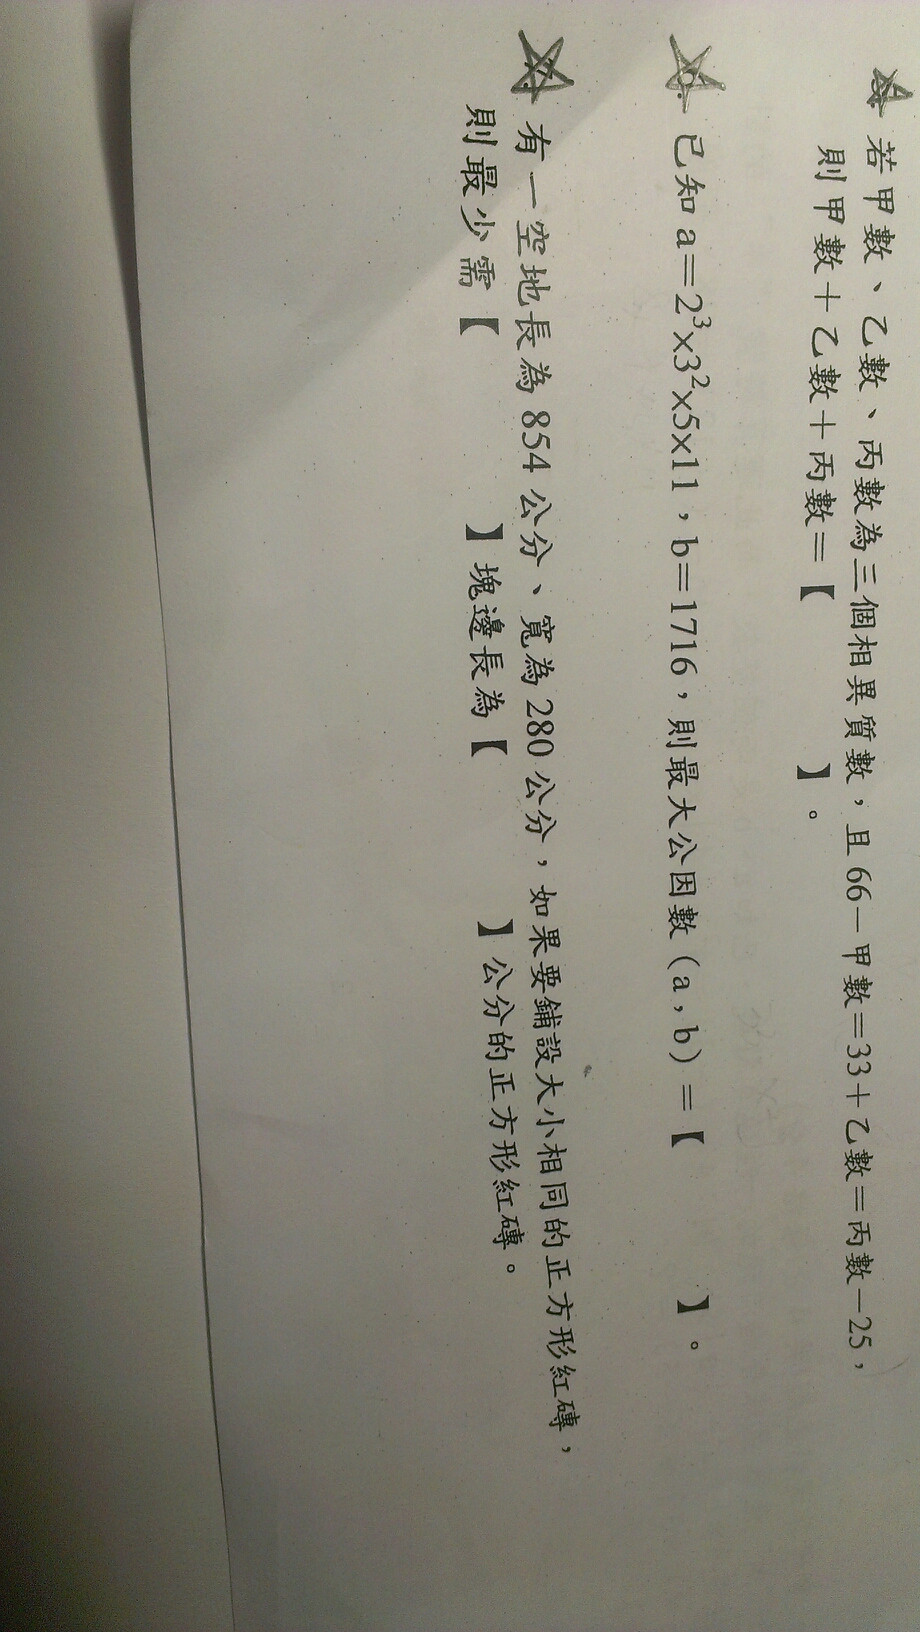 若甲數、乙數、丙數為三個相異質數，且66－甲數＝33＋乙數＝丙數－25，
則甲數＋乙數＋丙數＝【　　　】。
已知a＝2³×3²×5×11，b＝1716，則最大公因數(a，b)＝【　　　】。
有一空地長為854公分、寬為280公分，如果要鋪設大小相同的正方形紅磚，
則最少需【　　　】塊邊長為【　　　】公分的正方形紅磚。